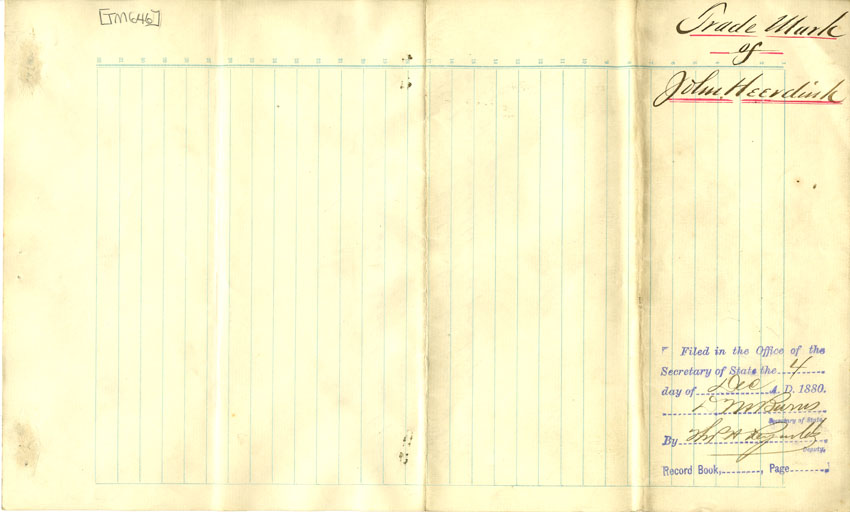 [TM646]
Trade Mark
of
John Heerdink
Filed in the Office of the
Secretary of State the 4
day of Dec A. D. 1880.
D M Burns
Secretary of State
By Reynolds
Deputy.
Record Book, , Page